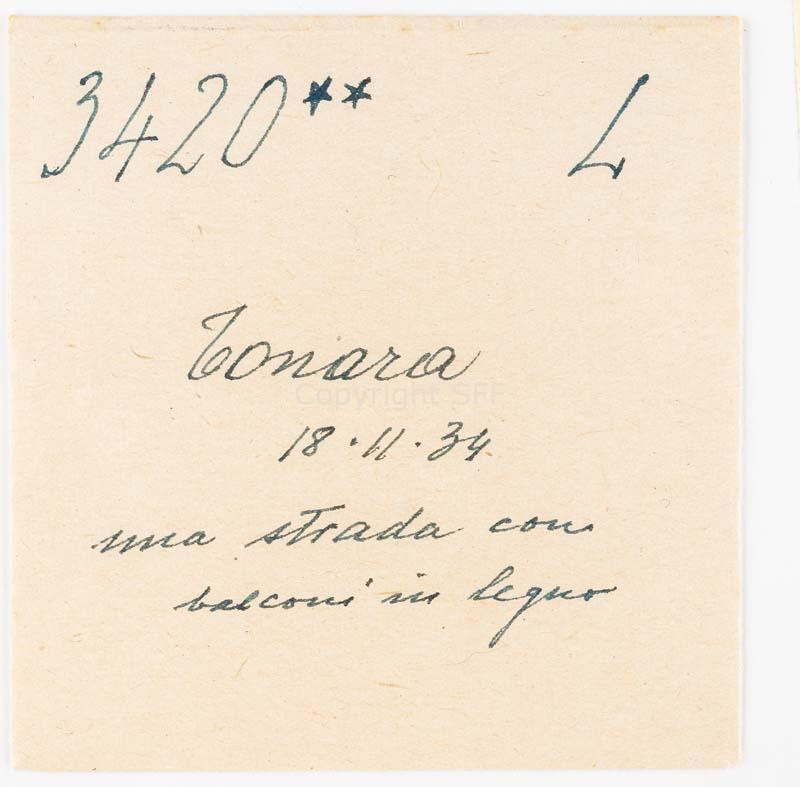 3420** L
Tonara
Copyright SFF
18.11.34
una strada con
balconi in legno